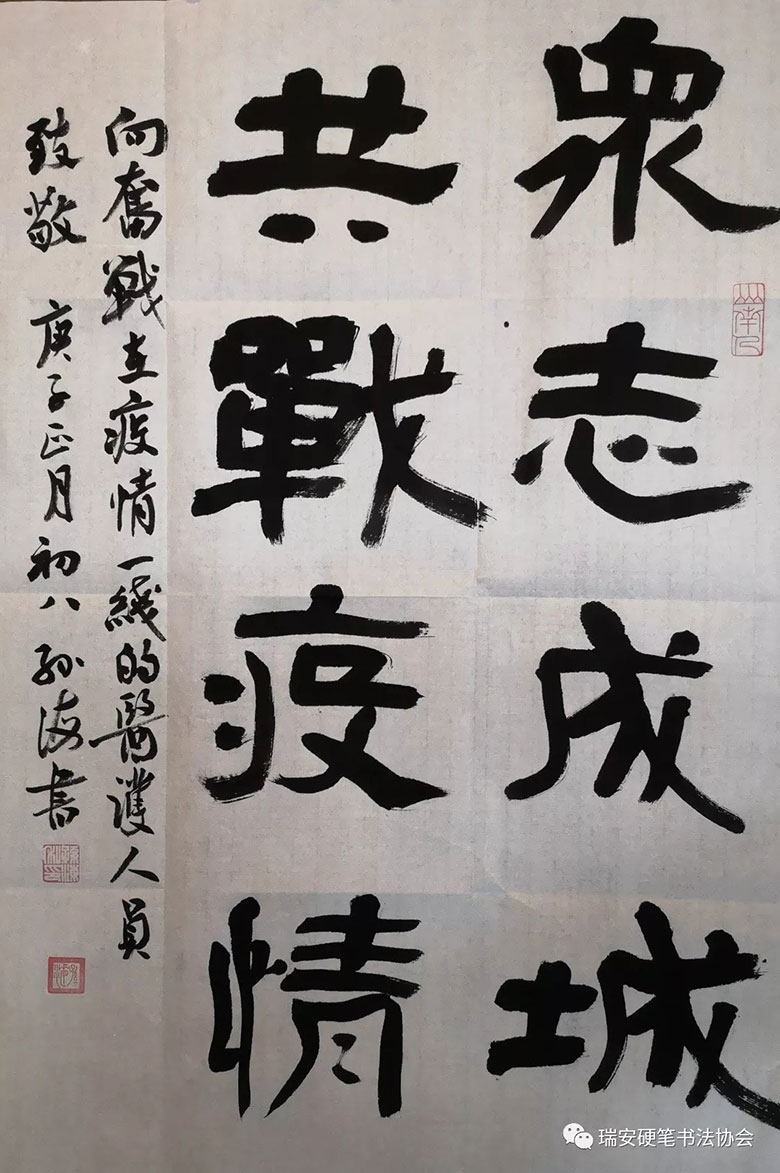 眾志成城
共戰疫情
向奮戰在疫情一綫的醫護人員
致敬 庚子正月初八 孫海書
瑞安硬笔书法协会